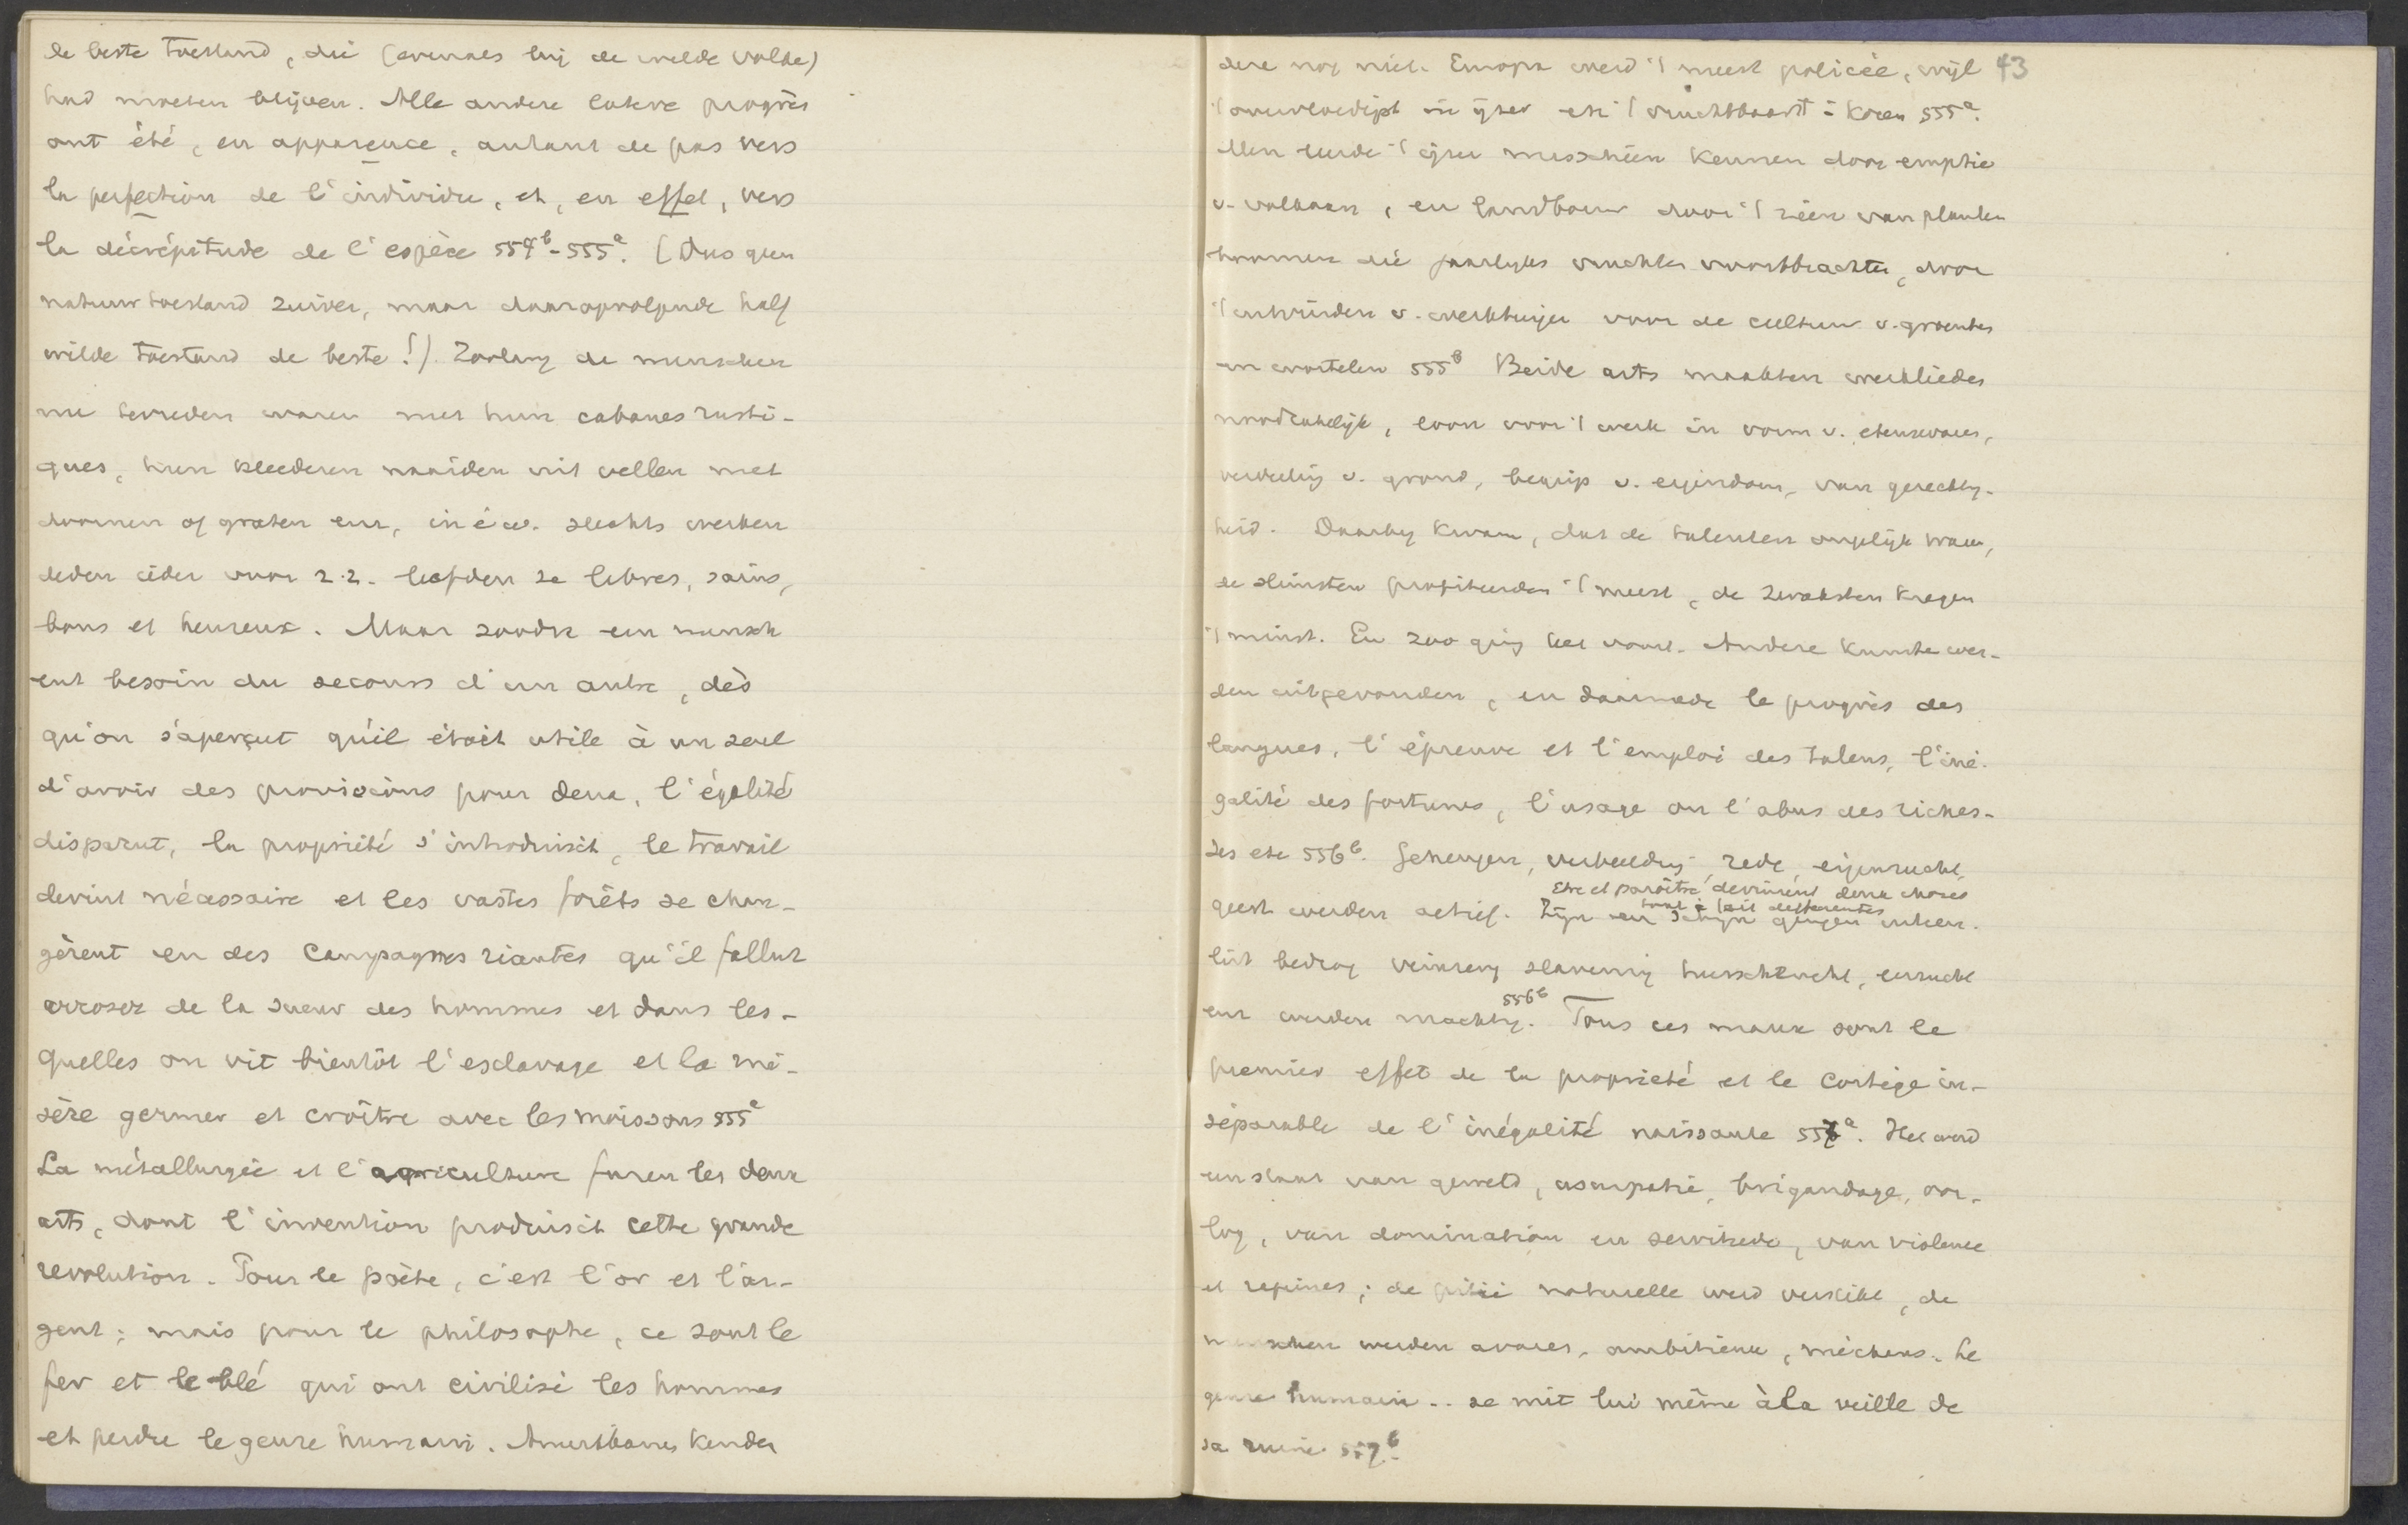 de beste toestand, die (evenals bij de wilde volke)
had moeten blijven. Alle andere latere progrès
ont été, en apparence, autant de pas vers
la perfection de l'individu, et, en effet, vers
la décrépitude de l'espèce 554b-555a. (Dus geen
natuurtoestand zuiver, maar daaropvolgende half
wilde toestand de beste!). Zoolang de menschen
nu tevreden waren met hun cabanes rusti-
ques, hun kleederen naaiden uit vellen met
doornen of graten enz, in é. w. slechts werken
deden ieder voor z.z. leefden ze libres, sains,
bons et heureux. Maar zoodra een mensch
eut besoin du secours d'un autre, dès
qu'on s'aperçut qu'il étoit utile à un seul
d'avoir des provisions pour deux, l'égalité
disparut, la propriété s'introduisit, le travail
devint nécessaire et les vastes forêts se chan-
gèrent en des campagnes riantes qu'il fallut
arroser de la sueur des hommes et dans les-
quelles on vit bientôt l'esclavage et la mi-
sère germer et croître avec les moissons 555a
La métallurgie et l'agriculture furen les deux
arts, dont l'invention produisit cette grande
revolution. Pour le poète, c'est l'or et l'ar-
gent; mais pour le philosophe, ce sont le
fer et le blé qui ont civilisé les hommes
et perdu le genre humain. Amerikanen kenden
43
deze nog niet. Europa werd 't meest policée, wijl
't overvloedigst in ijzer en 't vruchtbaarst - koren 555a.
Men leerde 't ijzer misschien kennen door eruptie
v. vulkaan, en landbouw door 't zien van planten
boomen die jaarlyks vruchten voortbrachten, door
't uitvinden v. werktuigen voor de cultuur v. groenten
en wortelen 555b Beide arts maakten werklieden
noodzakelijk, loon voor 't werk in vorm v. etenswaren,
verdeeling v. grond, begrip v. eigendom, van gerechtig-
heid. Daarby kwam, dat de talenten ongelijk waren,
de slimsten profiteerden 't meest, de zwaksten kregen
't minst. En zoo ging het voort. Andere kunsten wer-
den uitgevonden, en daarmede le progrès des
langues, l'épreuve et l'emploi des talens, l'iné-
galité des fortunes, l'usage ou l'abus des riches-
ses etc 556b. Geheugen, verbeelding, rede, eigenzucht,
Etre et paroître devinrent deux choses
tout à fait differentes
geest werden actief. Zijn en schijn gingen uiteen.
list bedrog veinzery slaverny heerschzucht, eerzucht
enz werden machtig. 556b Tous ces maux sont le
premier effet de la propriété et le cortège in-
séparable de l'inégalité naissante 557a. Het werd
een staat van geweld, usurpatie, brigandage, oor-
log, van domination en servitude, van violence
et rapines; de pitié naturelle werd verstikt, de
menschen werden avares, ambitieux, méchans. Le
genre humain .. se mit lui même à la veille de
sa ruine 557b.